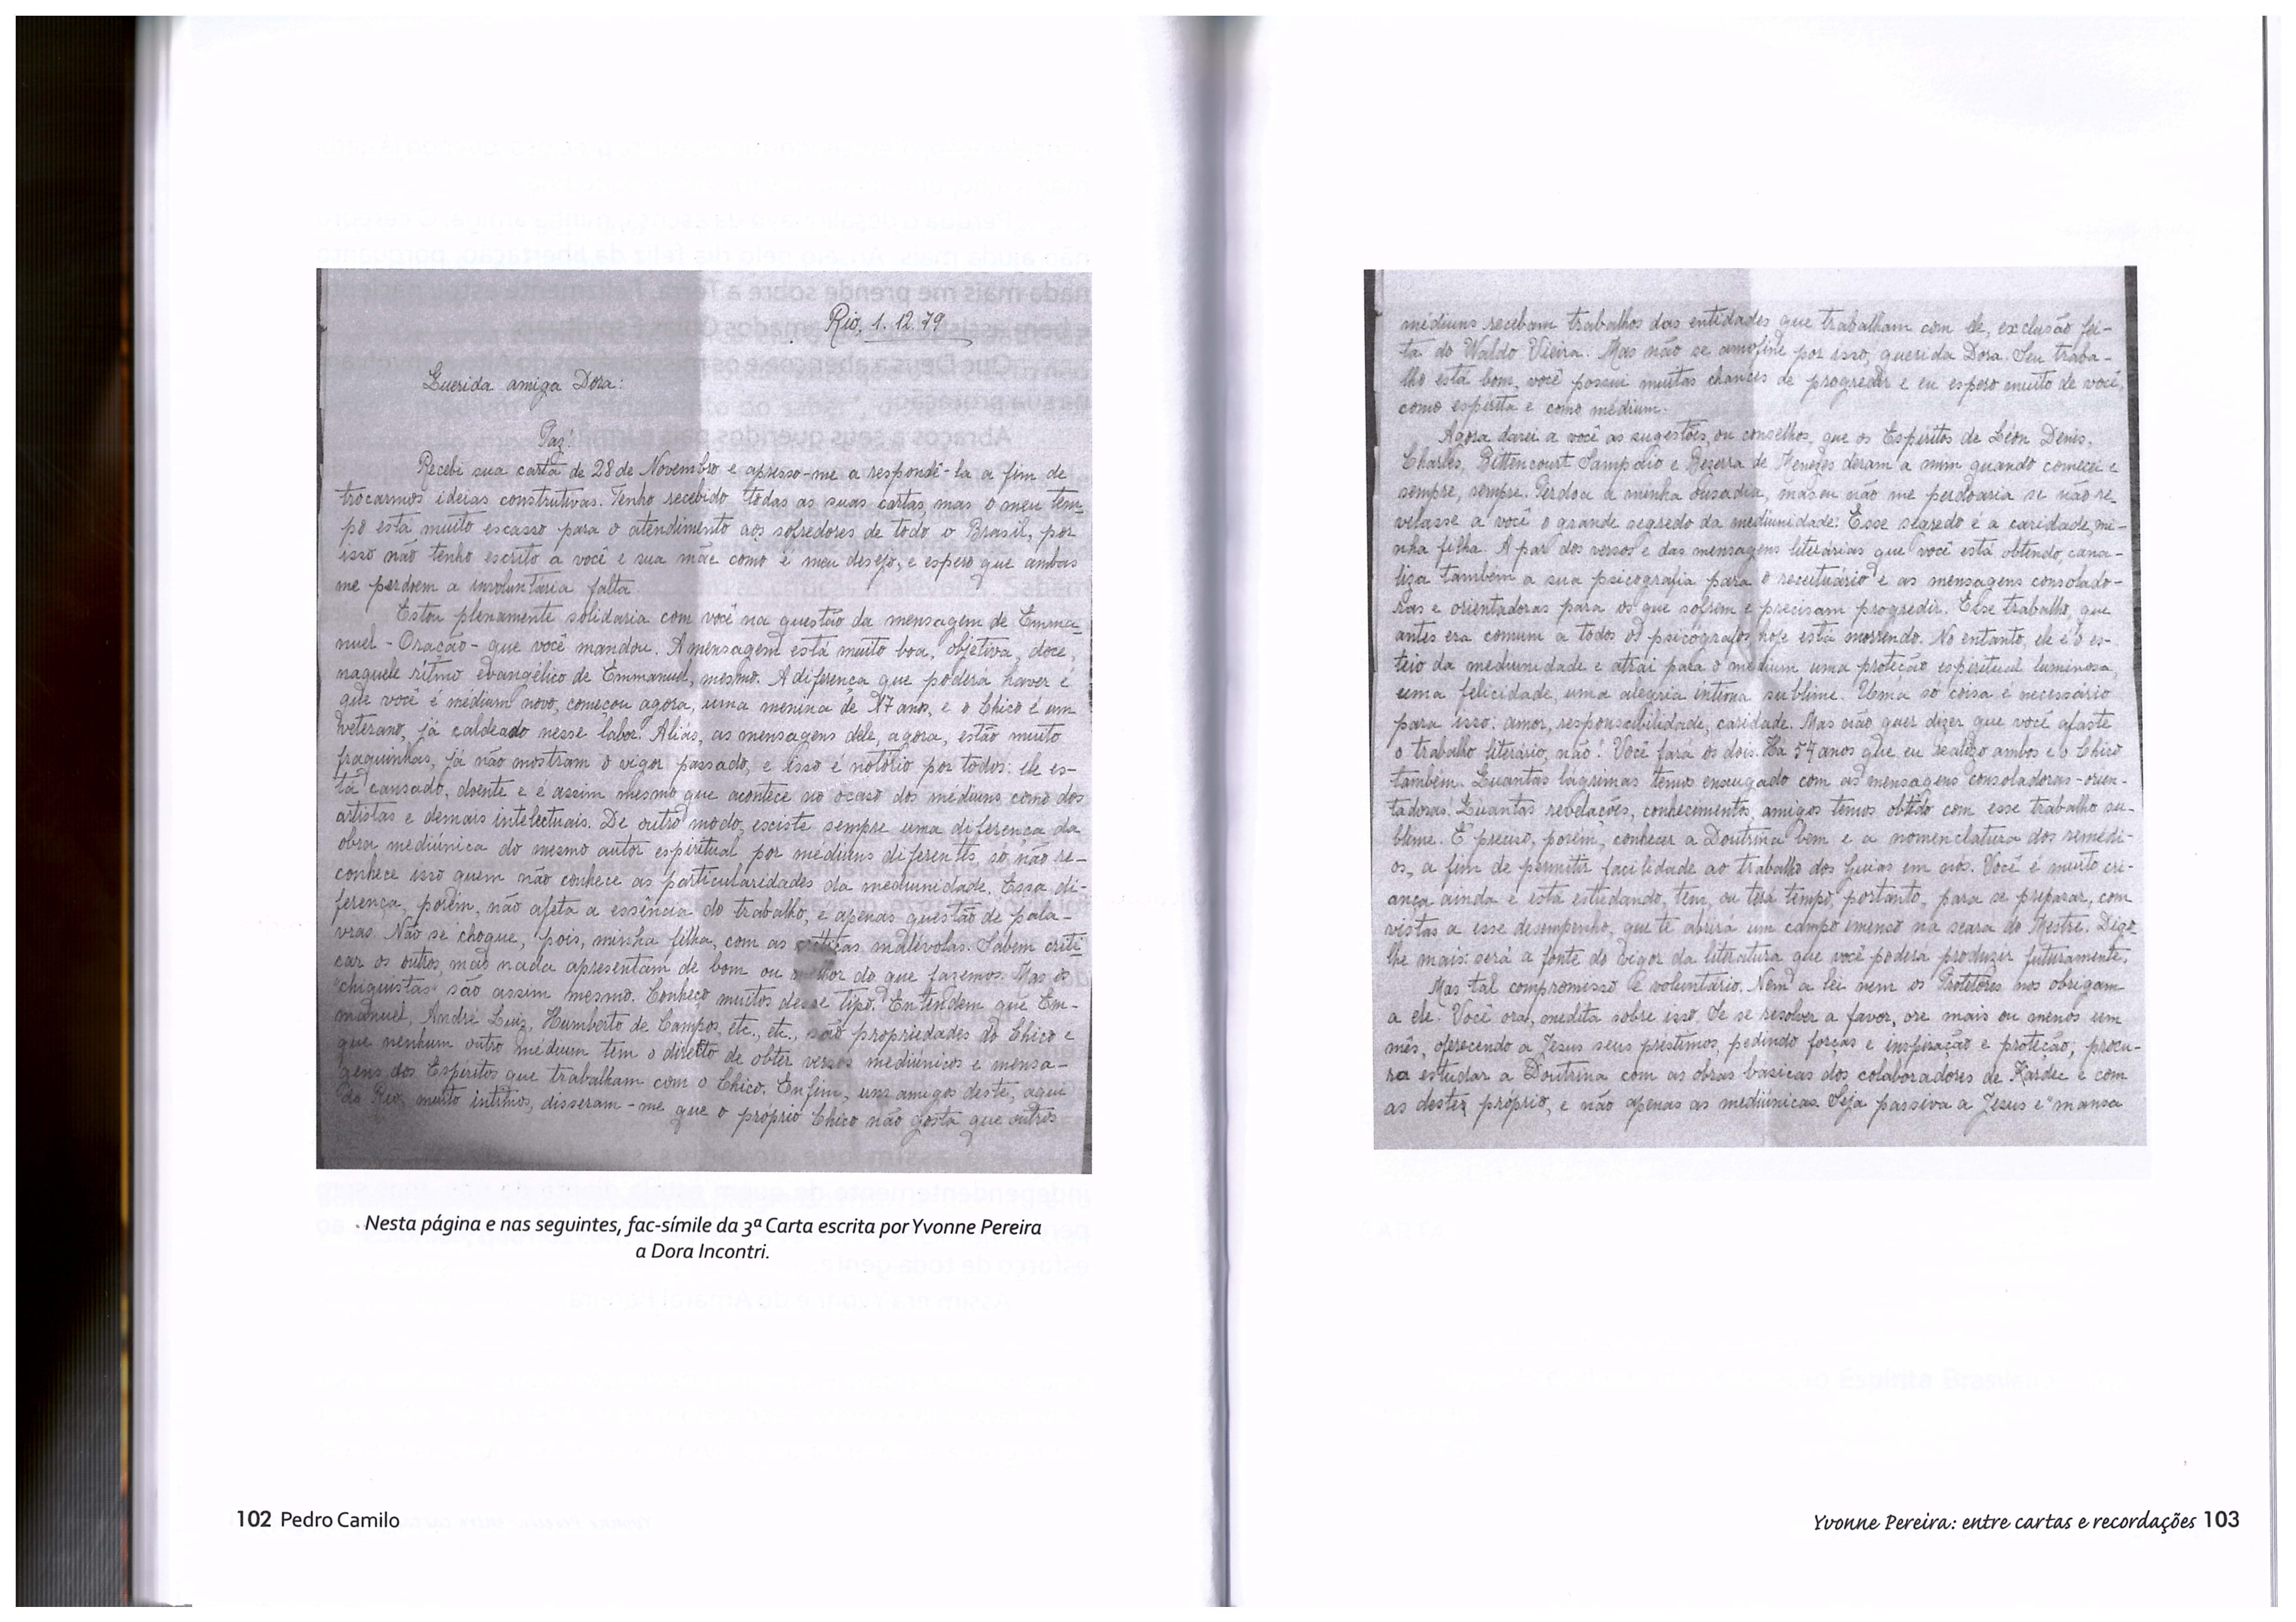 Rio, 1.12.79
Querida amiga Dora:
Paz!
Recebi sua carta de 28 de Novembro e apresso-me a respondê-la a fim de
trocarmos ideias construtivas. Tenho recebido todas as suas cartas, mas o meu tem-
po está muito escasso para o atendimento aos sofredores de todo o Brasil, por
isso não tenho escrito a você e sua mãe como é meu desejo, e espero que ambas
me perdoem a involuntária falta
Estou plenamente solidaria com você na questão da mensagem de Emma-
nuel - Oração - que você mandou. A mensagem está muito boa, objetiva, doce,
naquele ritmo evangélico de Emmanuel, mesmo. A diferença que poderá haver é
que você é médium novo, começou agora, uma menina de 17 anos, e o Chico é um
veterano, já caldeado nesse labor. Aliás, as mensagens dele, agora, estão muito
fraquinhas, já não mostram o vigor passado, e isso é notório por todos: ele es-
tá cansado, doente e é assim mesmo que acontece no ocaso dos médiuns como dos
artistas e demais intelectuais. De outro modo, existe sempre uma diferença da
obra mediúnica do mesmo autor espiritual por médiuns diferentes, só não re-
conhece isso quem não conhece as particularidades da mediunidade. Essa di-
ferença, porém, não afeta a essência do trabalho, e apenas questão de pala-
vras. Não se choque, pois, minha filha, com as críticas malévolas. Sabem criti-
car os outros, mas nada apresentam de bom ou melhor do que fazemos. Mas os
"chiquistas" são assim mesmo. Conheço muitos desse tipo. Entendem que Em-
manuel, André Luiz, Humberto de Campos, etc., etc., são propriedades do Chico e
que nenhum outro médium tem o direito de obter versos mediúnicos e mensa-
gens dos Espíritos que trabalham com o Chico. Enfim, uns amigos deste, aqui
do Rio, muito íntimos, disseram-me que o próprio Chico não gosta que outros
Nesta página e nas seguintes, fac-símile da 3ª Carta escrita por Yvonne Pereira
a Dora Incontri.
102 Pedro Camilo
médiuns recebam trabalhos das entidades que trabalham com ele, exclusão fei-
ta do Waldo Vieira. Mas não se amofine por isso, querida Dora. Seu traba-
lho está bom, você possui muitas chances de progredir e eu espero muito de você,
como espírita e como médium.
Agora darei a você as sugestões, ou conselhos, que os Espíritos de Léon Denis,
Charles, Bittencourt Sampaio e Bezerra de Menezes deram a mim quando comecei e
sempre, sempre. Perdoa a minha ousadia, mas eu não me perdoaria se não re-
velasse a você o grande segredo da mediunidade: Esse segredo é a caridade, mi-
nha filha. A par dos versos e das mensagens literárias que você está obtendo, cana-
liza também a sua psicografia para o receituário e as mensagens consolado-
ras e orientadoras para os que sofrem e precisam progredir. Esse trabalho, que
antes era comum a todos os psicógrafos, hoje está morrendo. No entanto, ele é o es-
teio da mediunidade e atrai para o médium uma proteção espiritual luminosa,
uma felicidade, uma alegria íntima sublime. Uma só coisa é necessário
para isso: amor, responsabilidade, caridade. Mas não quer dizer que você afaste
o trabalho literário, não! Você fará os dois. Há 54 anos que eu realizo ambos e o Chico
também. Quantas lágrimas temos enxugado com as mensagens consoladoras-orien-
tadoras! Quantas revelações, conhecimentos, amigos temos obtido com esse trabalho su-
blime. É preciso, porém, conhecer a Doutrina bem e a nomenclatura dos remédi-
os, a fim de permitir facilidade ao trabalho dos Guias em nós. Você é muito cri-
ança ainda e está estudando, tem, ou terá tempo, portanto, para se preparar, com
vistas a esse desempenho, que te abrirá um campo imenso na seara do Mestre. Digo-
lhe mais: será a fonte do vigor da literatura que você poderá produzir futuramente.
Mas tal compromisso é voluntário. Nem a lei nem os Protetores nos obrigam
a ele. Você ora, medita sobre isso. Se se resolver a favor, ore mais ou menos um
mês, oferecendo a Jesus seus préstimos, pedindo forças e inspiração e proteção; procu-
ra estudar a Doutrina com as obras básicas dos colaboradores de Kardec e com
as destes próprio, e não apenas as mediúnicas. Seja passiva a Jesus e "mansa
Yvonne Pereira: entre cartas e recordações 103